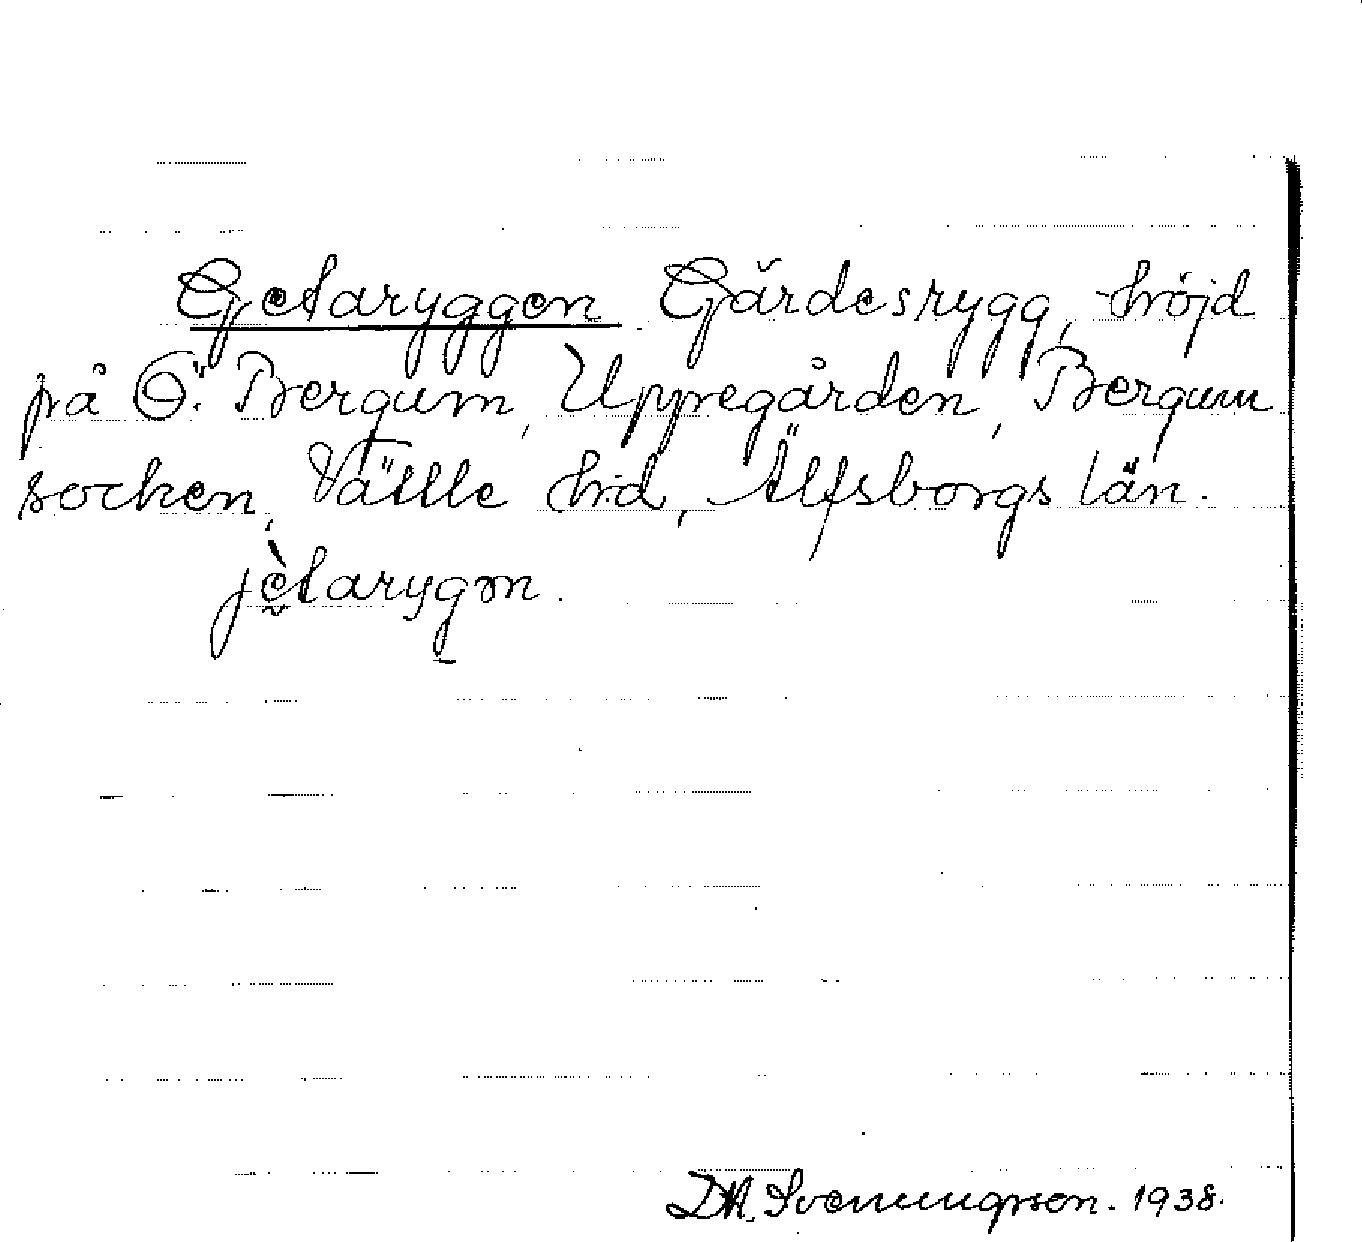 Getaryggen Gärdesrygg, höjd
på Ö. Bergum, Uppegården, Bergum
socken, Vättle hd, Älfsborgs län.
jètarygɔn.
D.M. Svenungsson. 1938.